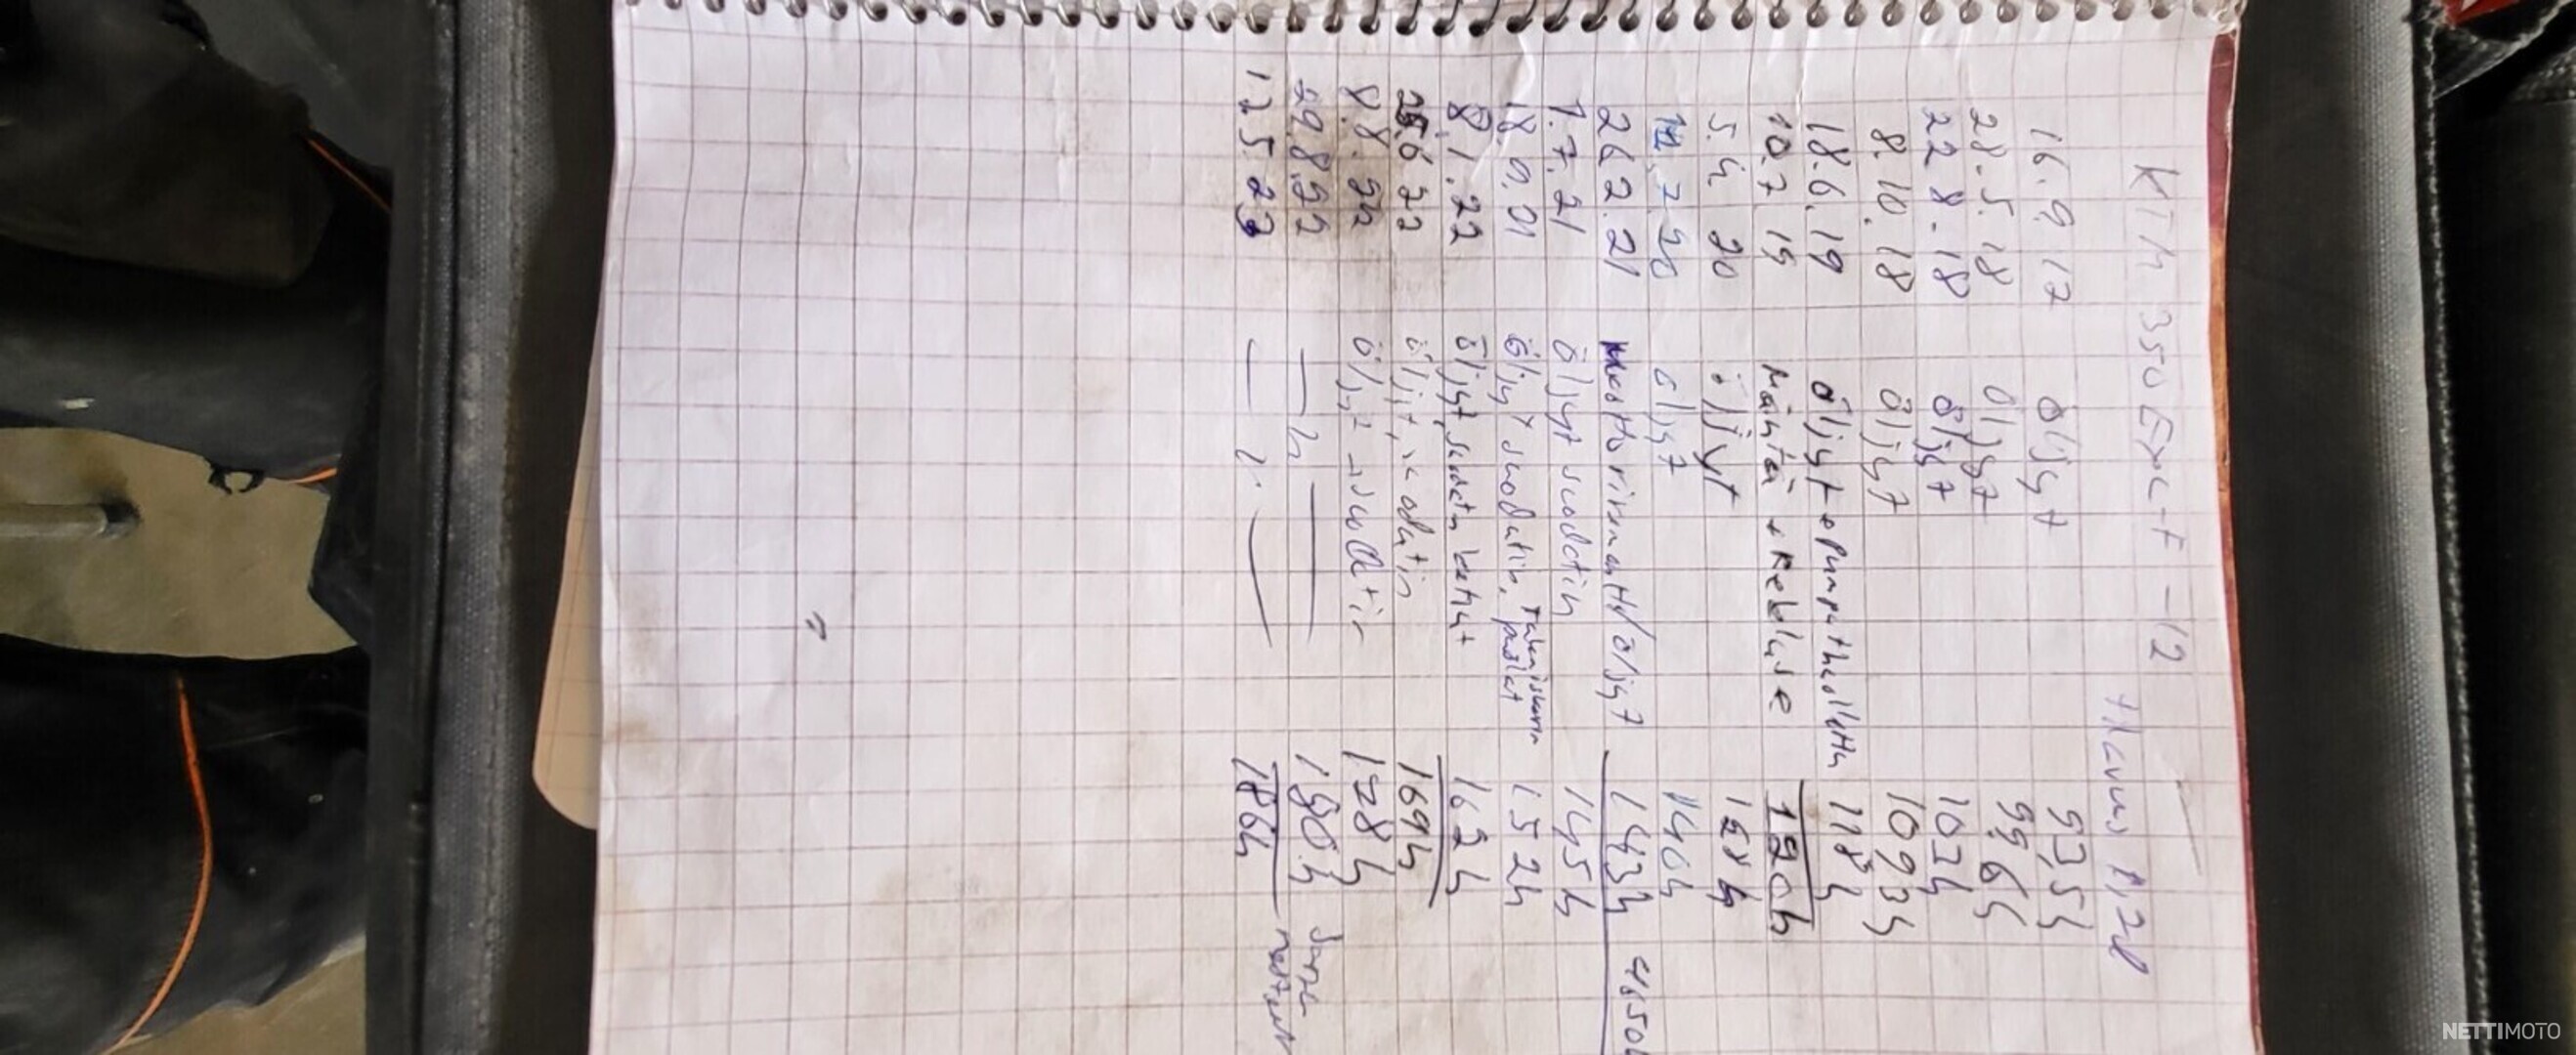 KTM 350 EXC-F -12
tilavuus 1,2l
16.9.17 öljyt 93,5h
28.5.18 öljyt 99,6h
22.8.18 öljyt 103h
8.10.18 öljyt 109,3h
18.6.19 öljyt + pumput huollettu 118h
10.7.19 Mäntä + Kekluse 120h
5.4.20 öljyt 128h
7.20 öljyt 140h
26 2.21 öljyt 143h
1.7.21 öljyt suodatin 145h
18 9.21 öljyt suodatin, Takaiskarin 152h
8.1.22 öljyt, 162h
25.6 22 öljyt, suodatin 169h
8.8.22 öljyt suodatin 178h
29.8.22 — 11 — 180h
1 2 5.23 — 11 — 186h
NETTIMOTO